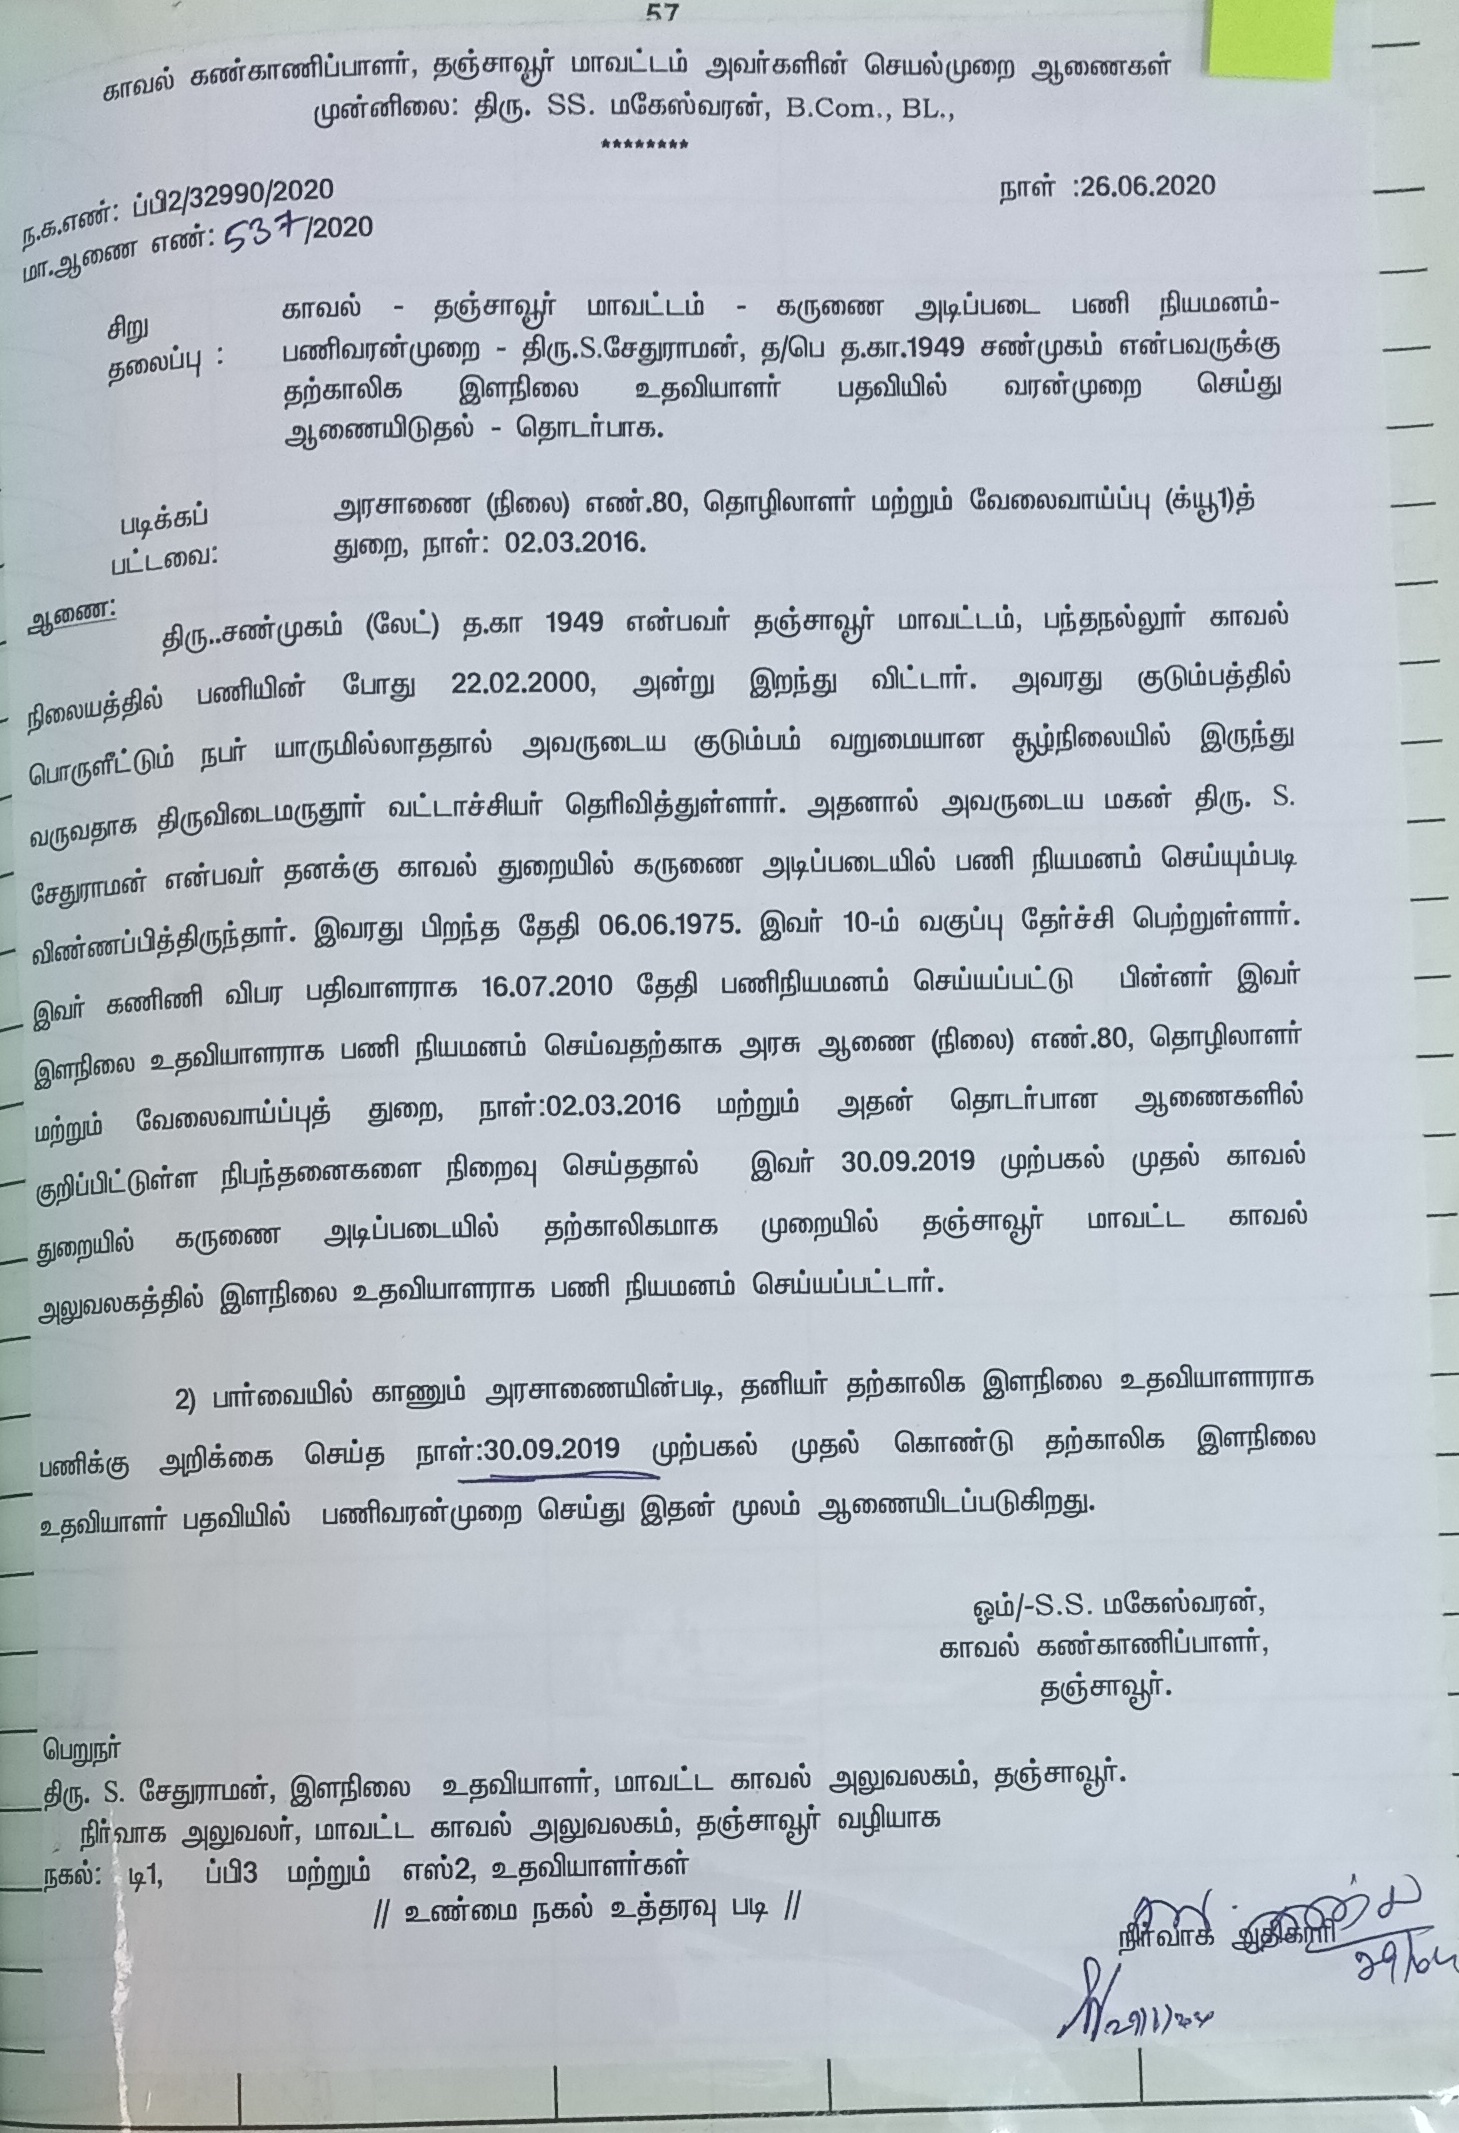 57
காவல் கண்காணிப்பாளர், தஞ்சாவூர் மாவட்டம் அவர்களின் செயல்முறை ஆணைகள்
முன்னிலை: திரு. SS. மகேஸ்வரன், B.Com., BL.,
********
ந.க.எண்: ப்பி2/32990/2020
நாள் :26.06.2020
மா.ஆணை எண்: 537/2020
சிறு தலைப்பு :
காவல் - தஞ்சாவூர் மாவட்டம் - கருணை அடிப்படை பணி நியமனம்-
பணிவரன்முறை - திரு.S.சேதுராமன், த/பெ த.கா.1949 சண்முகம் என்பவருக்கு
தற்காலிக இளநிலை உதவியாளர் பதவியில் வரன்முறை செய்து
ஆணையிடுதல் - தொடர்பாக.
படிக்கப் பட்டவை:
அரசாணை (நிலை) எண்.80, தொழிலாளர் மற்றும் வேலைவாய்ப்பு (க்யூ1)த்
துறை, நாள்: 02.03.2016.
ஆணை:
திரு..சண்முகம் (லேட்) த.கா 1949 என்பவர் தஞ்சாவூர் மாவட்டம், பந்தநல்லூர் காவல்
நிலையத்தில் பணியின் போது 22.02.2000, அன்று இறந்து விட்டார். அவரது குடும்பத்தில்
பொருளீட்டும் நபர் யாருமில்லாததால் அவருடைய குடும்பம் வறுமையான சூழ்நிலையில் இருந்து
வருவதாக திருவிடைமருதூர் வட்டாச்சியர் தெரிவித்துள்ளார். அதனால் அவருடைய மகன் திரு. S.
சேதுராமன் என்பவர் தனக்கு காவல் துறையில் கருணை அடிப்படையில் பணி நியமனம் செய்யும்படி
விண்ணப்பித்திருந்தார். இவரது பிறந்த தேதி 06.06.1975. இவர் 10-ம் வகுப்பு தேர்ச்சி பெற்றுள்ளார்.
இவர் கணிணி விபர பதிவாளராக 16.07.2010 தேதி பணிநியமனம் செய்யப்பட்டு பின்னர் இவர்
இளநிலை உதவியாளராக பணி நியமனம் செய்வதற்காக அரசு ஆணை (நிலை) எண்.80, தொழிலாளர்
மற்றும் வேலைவாய்ப்புத் துறை, நாள்:02.03.2016 மற்றும் அதன் தொடர்பான ஆணைகளில்
குறிப்பிட்டுள்ள நிபந்தனைகளை நிறைவு செய்ததால் இவர் 30.09.2019 முற்பகல் முதல் காவல்
துறையில் கருணை அடிப்படையில் தற்காலிகமாக முறையில் தஞ்சாவூர் மாவட்ட காவல்
அலுவலகத்தில் இளநிலை உதவியாளராக பணி நியமனம் செய்யப்பட்டார்.
2) பார்வையில் காணும் அரசாணையின்படி, தனியர் தற்காலிக இளநிலை உதவியாளாராக
பணிக்கு அறிக்கை செய்த நாள்:30.09.2019 முற்பகல் முதல் கொண்டு தற்காலிக இளநிலை
உதவியாளர் பதவியில் பணிவரன்முறை செய்து இதன் மூலம் ஆணையிடப்படுகிறது.
ஓம்/-S.S. மகேஸ்வரன்,
காவல் கண்காணிப்பாளர்,
தஞ்சாவூர்.
பெறுநர்
திரு. S. சேதுராமன், இளநிலை உதவியாளர், மாவட்ட காவல் அலுவலகம், தஞ்சாவூர்.
நிர்வாக அலுவலர், மாவட்ட காவல் அலுவலகம், தஞ்சாவூர் வழியாக
நகல்: டி1, ப்பி3 மற்றும் எஸ்2, உதவியாளர்கள்
// உண்மை நகல் உத்தரவு படி //
நிர்வாக அதிகாரி